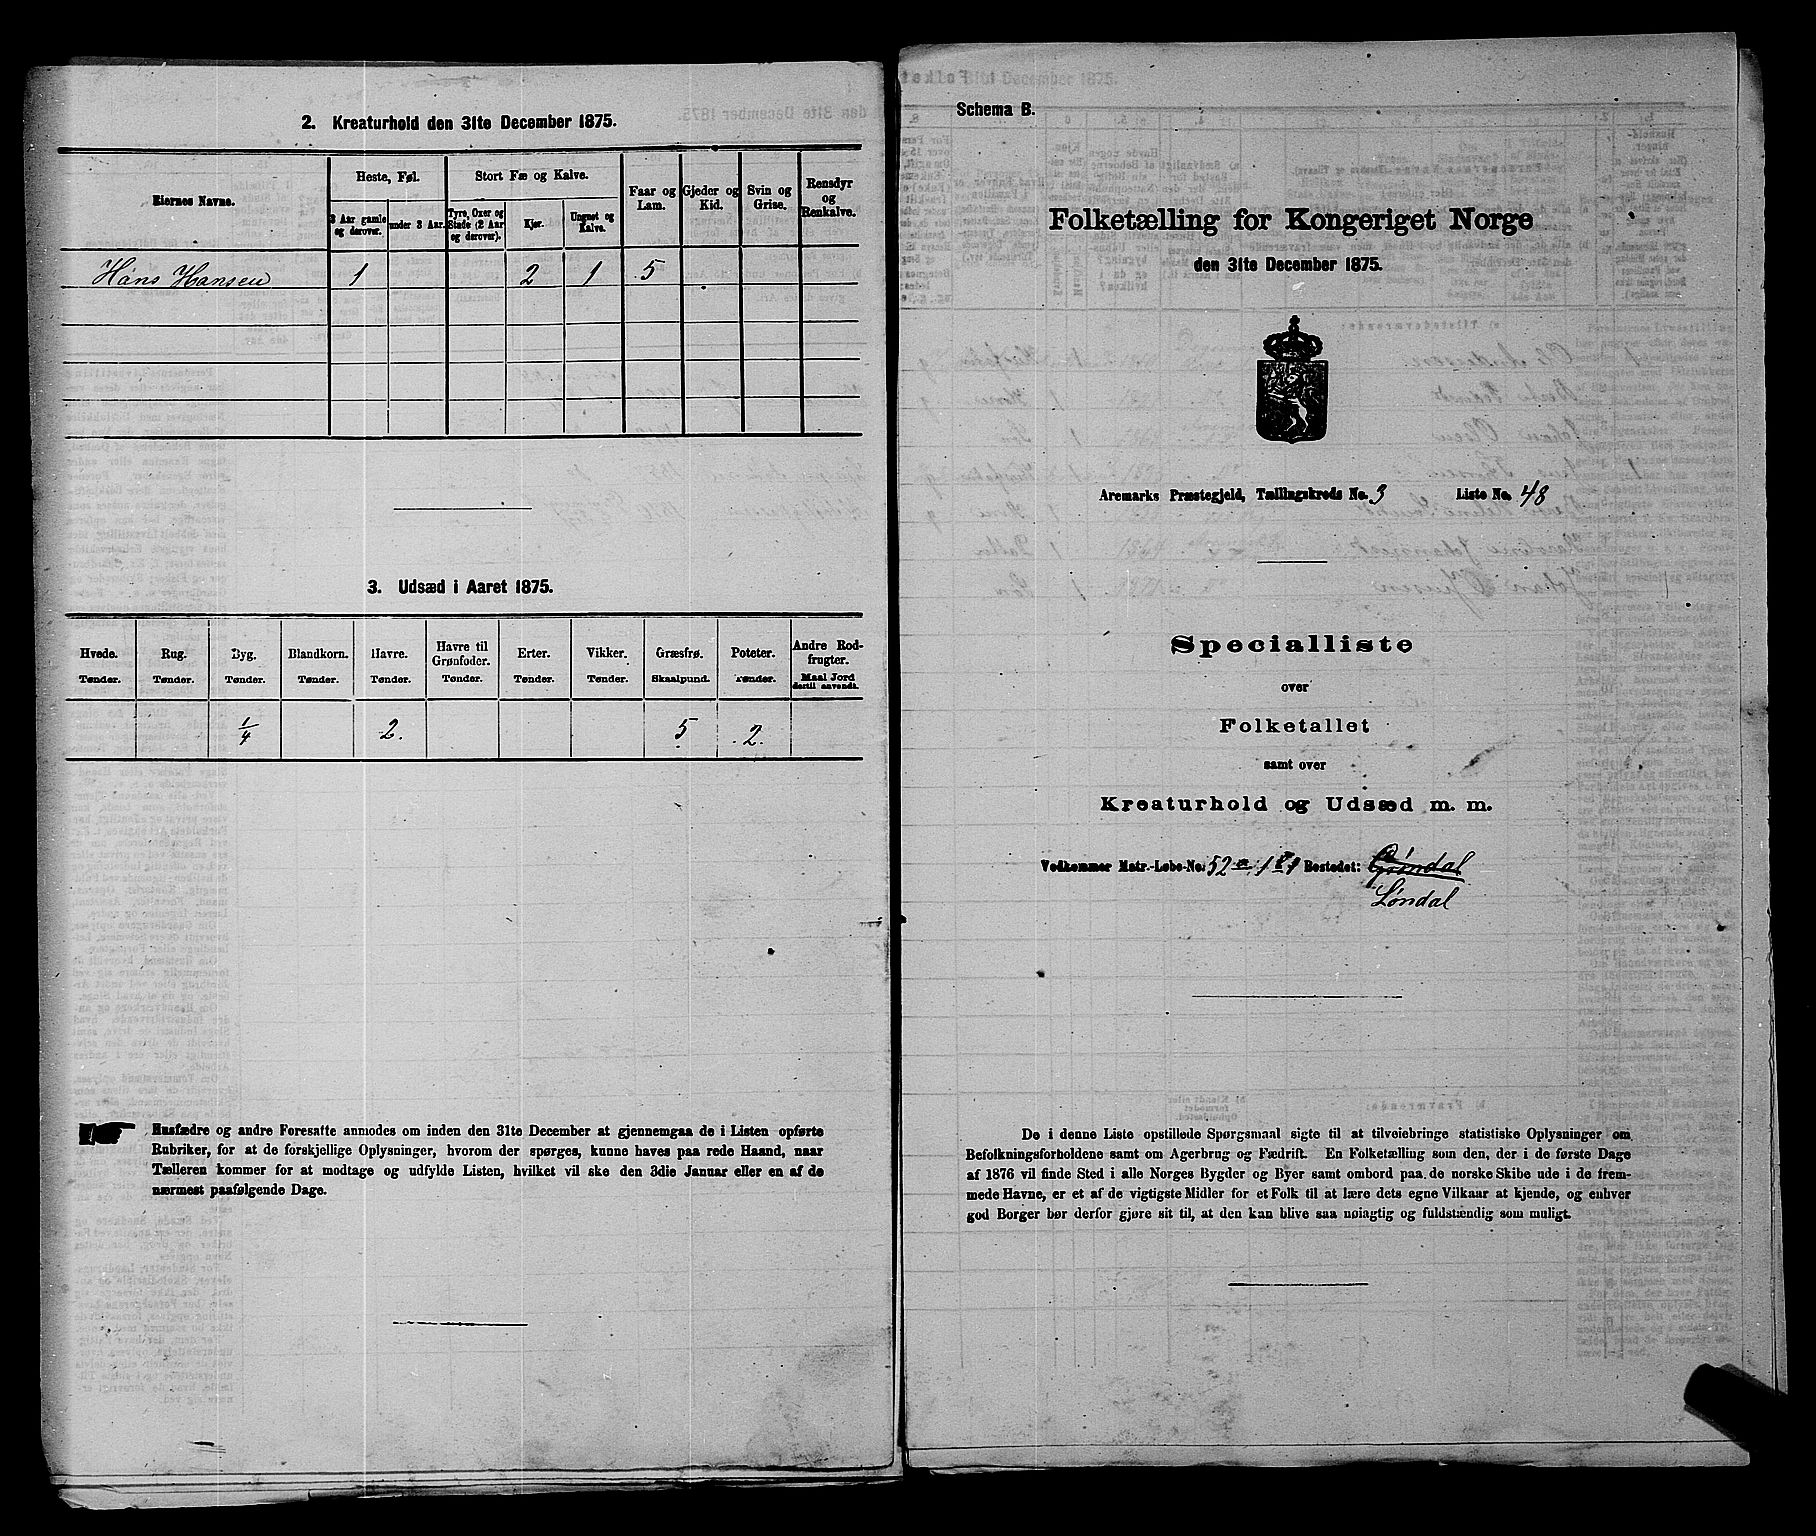 2. Kreaturhold den 31te December 1875.
Eiernes Navne.
Heste, Føl.
3 Aar gamle og derover.
under 3 Aar.
Stort Fæ og Kalve.
Tyre, Oxer og Stude (2 Aar og derover).
Kjør.
Ungnøt og Kalve.
Faar og Lam.
Gjeder og Kid.
Svin og Grise.
Rensdyr og Renkalve.
Hans Hansen 1 2 1 5
3. Udsæd i Aaret 1875.
Hvede. Rug. Byg. Blandkorn. Havre. Havre til Grønfoder. Erter. Vikker. Græsfrø. Poteter. Andre Rodfrugter.
Tønder. Tønder. Tønder. Tønder. Tønder. Tønder. Tønder. Tønder. Skaalpund. Tønder. Maal Jord dertil anvendt.
1/4 2. 5 2.
Husfædre og andre Foresatte anmodes om inden den 31te December at gjennemgaa de i Listen opførte
Rubriker, for at de forskjellige Oplysninger, hvorom der spørges, kunne haves paa rede Haand, naar
Tælleren kommer for at modtage og udfylde Listen, hvilket vil ske den 3die Januar eller en af de
nærmest paafølgende Dage.
Schema B.
Folketælling for Kongeriget Norge
den 31te December 1875.
Aremarks Præstegjeld, Tællingskreds No. 3 Liste No. 48
Specialliste
over
Folketallet
samt over
Kreaturhold og Udsæd m. m.
Vedkommer Matr.-Løbe-No. 52 a, 1 Bostedet: Grøndal
Løndal
De i denne Liste opstillede Spørgsmaal sigte til at tilveiebringe statistiske Oplysninger om
Befolkningsforholdene samt om Agerbrug og Fædrift. En Folketælling som den, der i de første Dage
af 1876 vil finde Sted i alle Norges Bygder og Byer samt ombord paa de norske Skibe ude i de frem-
mede Havne, er et af de vigtigste Midler for et Folk til at lære dets egne Vilkaar at kjende, og enhver
god Borger bør derfor gjøre sit til, at den kan blive saa nøiagtig og fuldstændig som muligt.